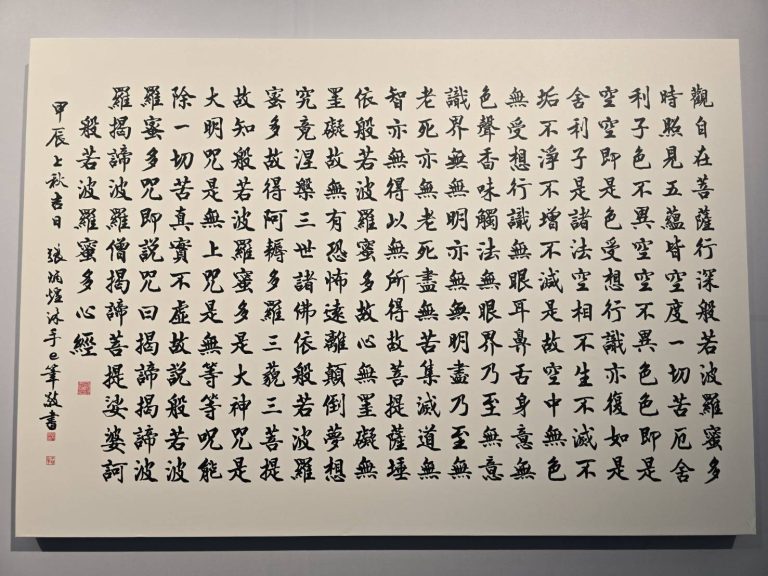 觀自在菩薩行深般若波羅蜜多
時照見五蘊皆空度一切苦厄舍
利子色不異空空不異色色即是
空空即是色受想行識亦復如是
舍利子是諸法空相不生不滅不
垢不淨不增不減是故空中無色
無受想行識無眼耳鼻舌身意無
色聲香味觸法無眼界乃至無意
識界無無明亦無無明盡乃至無
老死亦無老死盡無苦集滅道無
智亦無得以無所得故菩提薩埵
依般若波羅蜜多故心無罣礙無
罣礙故無有恐怖遠離顛倒夢想
究竟涅槃三世諸佛依般若波羅
蜜多故得阿耨多羅三藐三菩提
故知般若波羅蜜多是大神咒是
大明咒是無上咒是無等等呪能
除一切苦真實不虛故說般若波
羅蜜多咒即說咒曰揭諦揭諦波
羅揭諦波羅僧揭諦菩提娑婆訶
般若波羅蜜多心經
甲辰上秋吉日 張炳煌沐手e筆敬書